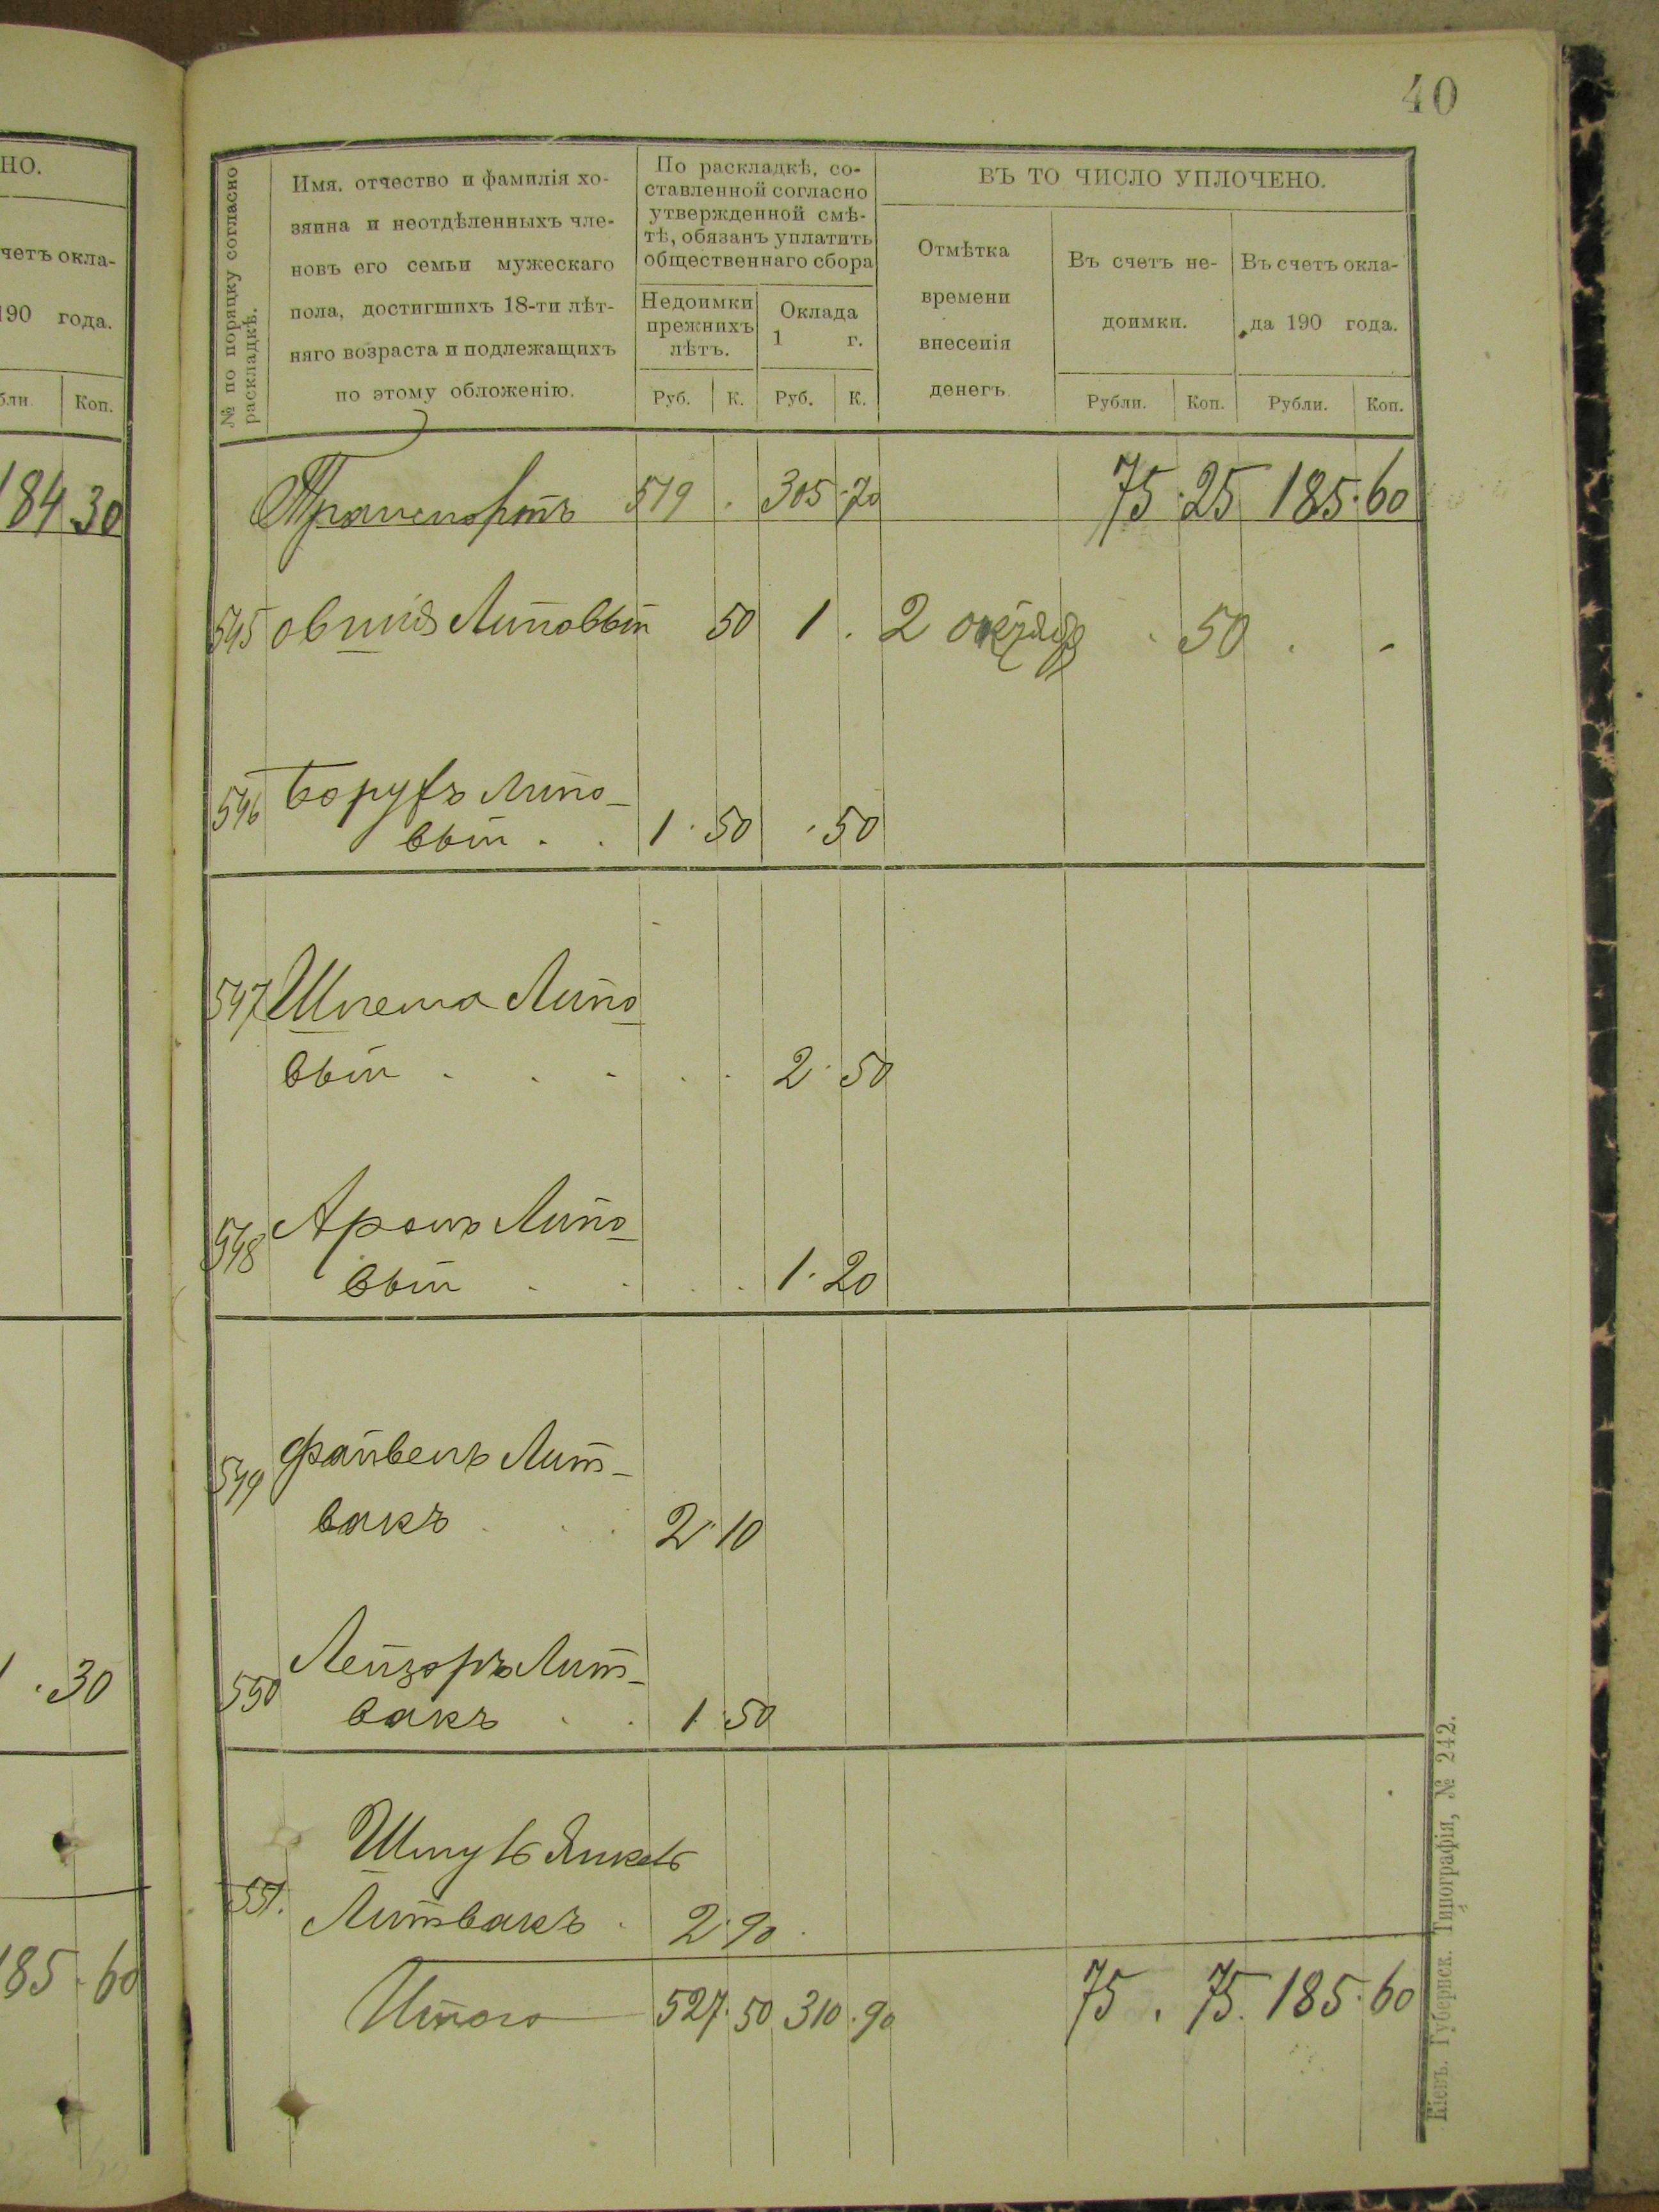 40
НО.
четъ окла-
190 года.
бли. Коп.
184 30
1 . 30
185 . 60
№ по порядку согласно
раскладкѣ.
Имя, отчество и фамилія хо-
зяина и неотдѣленныхъ чле-
новъ его семьи мужескаго
пола, достигшихъ 18-ти лѣт-
няго возраста и подлежащихъ
по этому обложенію.
По раскладкѣ, со-
ставленной согласно
утвержденной смѣ-
тѣ, обязанъ уплатить
общественнаго сбора
Недоимки
прежнихъ
лѣтъ.
Оклада
1 г.
Руб. К. Руб. К.
ВЪ ТО ЧИСЛО УПЛОЧЕНО.
Отмѣтка
времени
внесенія
денегъ.
Въ счетъ не-
доимки.
Въ счетъ окла-
да 190 года.
Рубли. Коп. Рубли. Коп.
Транспортъ 519 . 305 . 70 75 . 25 185 . 60
545 Овшія Липовый 50 1 . 2 октября . 50 . -
546 Борухъ Липо-
вый . . 1 . 50 . 50
547 Шлема Липо
вый . . . . . 2 . 50
548 Аронъ Липо
вый . . . . 1 . 20
549 Файвель Лит-
вакъ . . . 2 . 10
550 Лейзоръ Лит-
вакъ . . 1 . 50
551. Шмуль Янкель
Литвакъ . 2 . 90 .
Итого 527 . 50 310 . 90 75 . 75 . 185 . 60
Кіевъ. Губернск. Типографія, № 242.